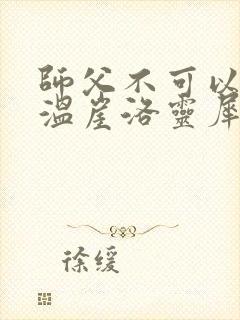 師父不可以
溫崖洛靈犀
徐缓